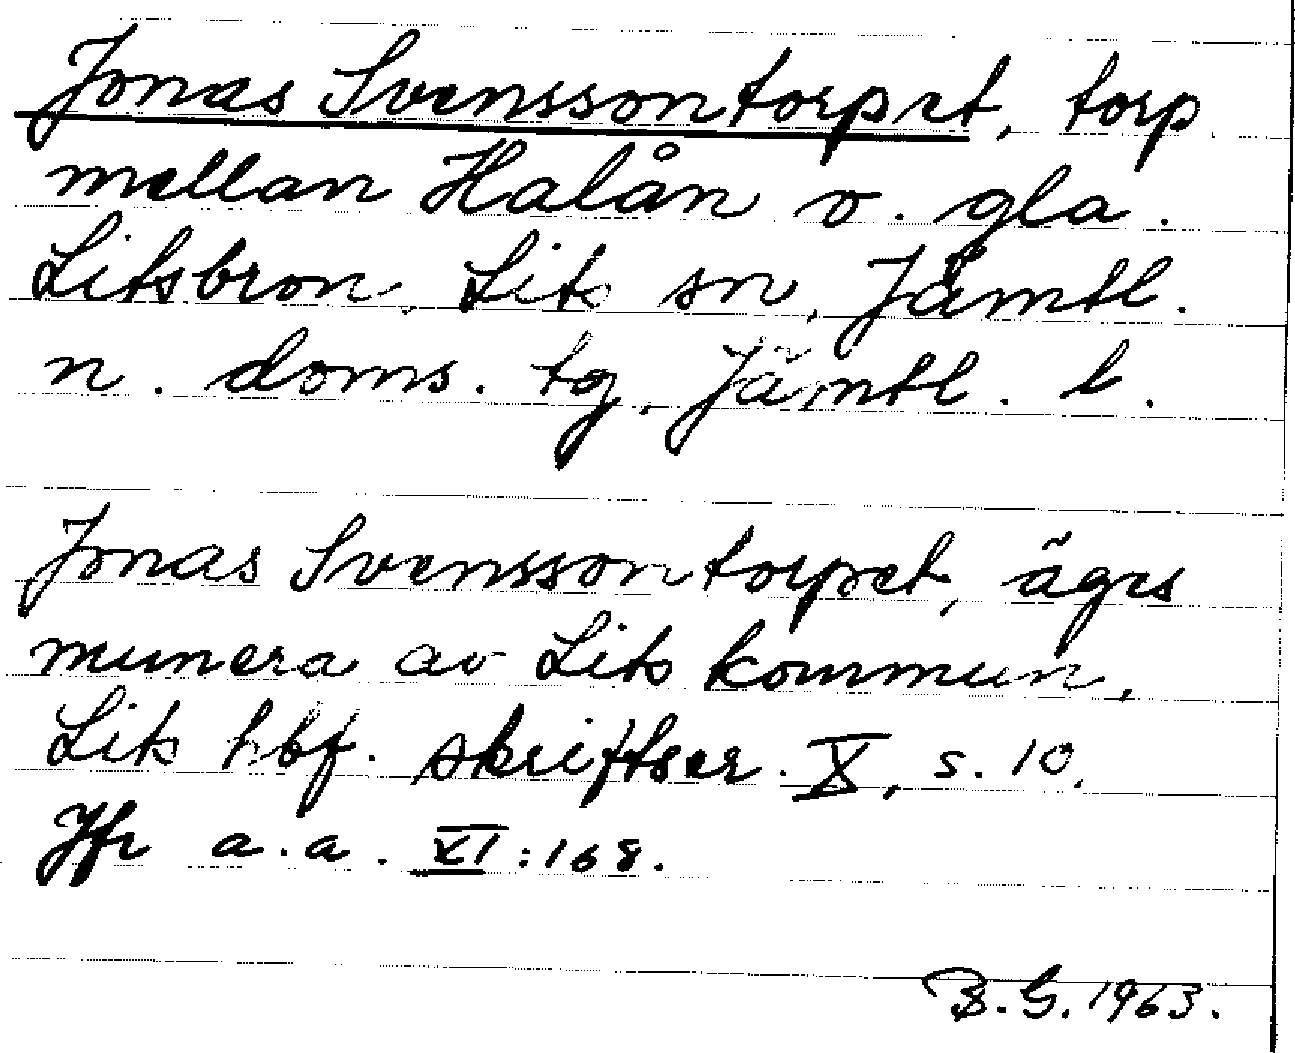 Jonas Svenssontorpet, torp
mellan Halån o. gla.
Litsbron, Lits sn, Jämtl.
n. doms. tg, Jämtl. l.
Jonas Svenssontorpet, äges
munera av Lits kommun,
Lits hbf. skriftser. X, s. 10.
Jfr a.a. XI:168.
B.G. 1963.